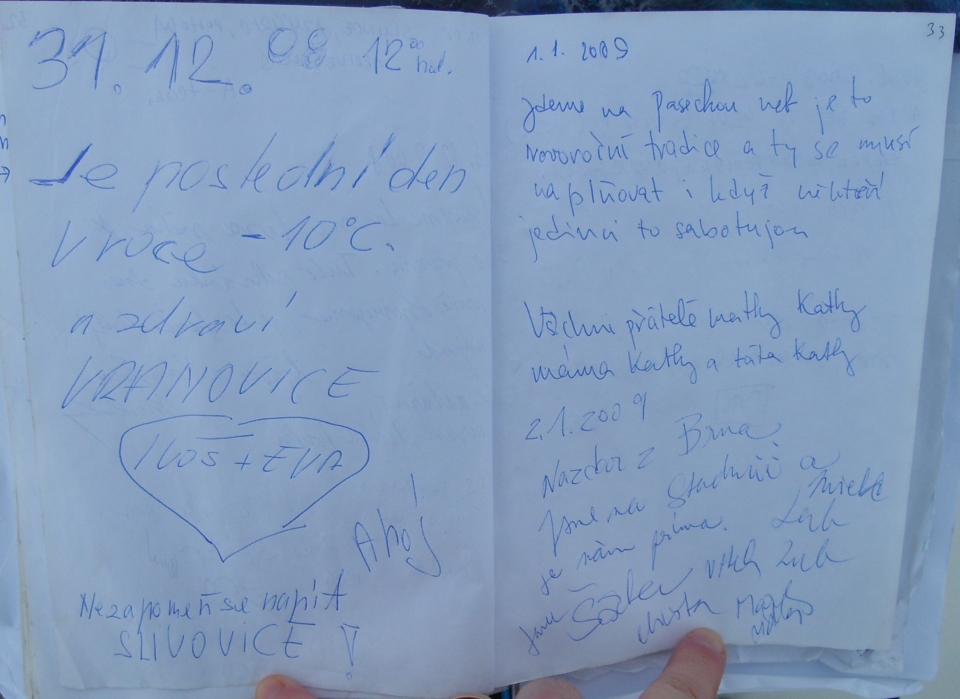 31. 12. 08 12 00 hod.
Je poslední den
v roce -10°C.
a zdraví
VRANOVICE
IVOŠ + EVA
Ahoj!
Nezapomeň se napít
SLIVOVICE!
33
1. 1. 2009
Jdeme na Pasechou neb je to
novoroční tradice a ty se musí
naplňovat i když někteří
jedinci to sabotujou
Všichni přátelé matky Kathy
máma Kathy a táta Kathy
2.1.2009
Nazdar z Brna
Jsme na Studnici a
je nám príma.